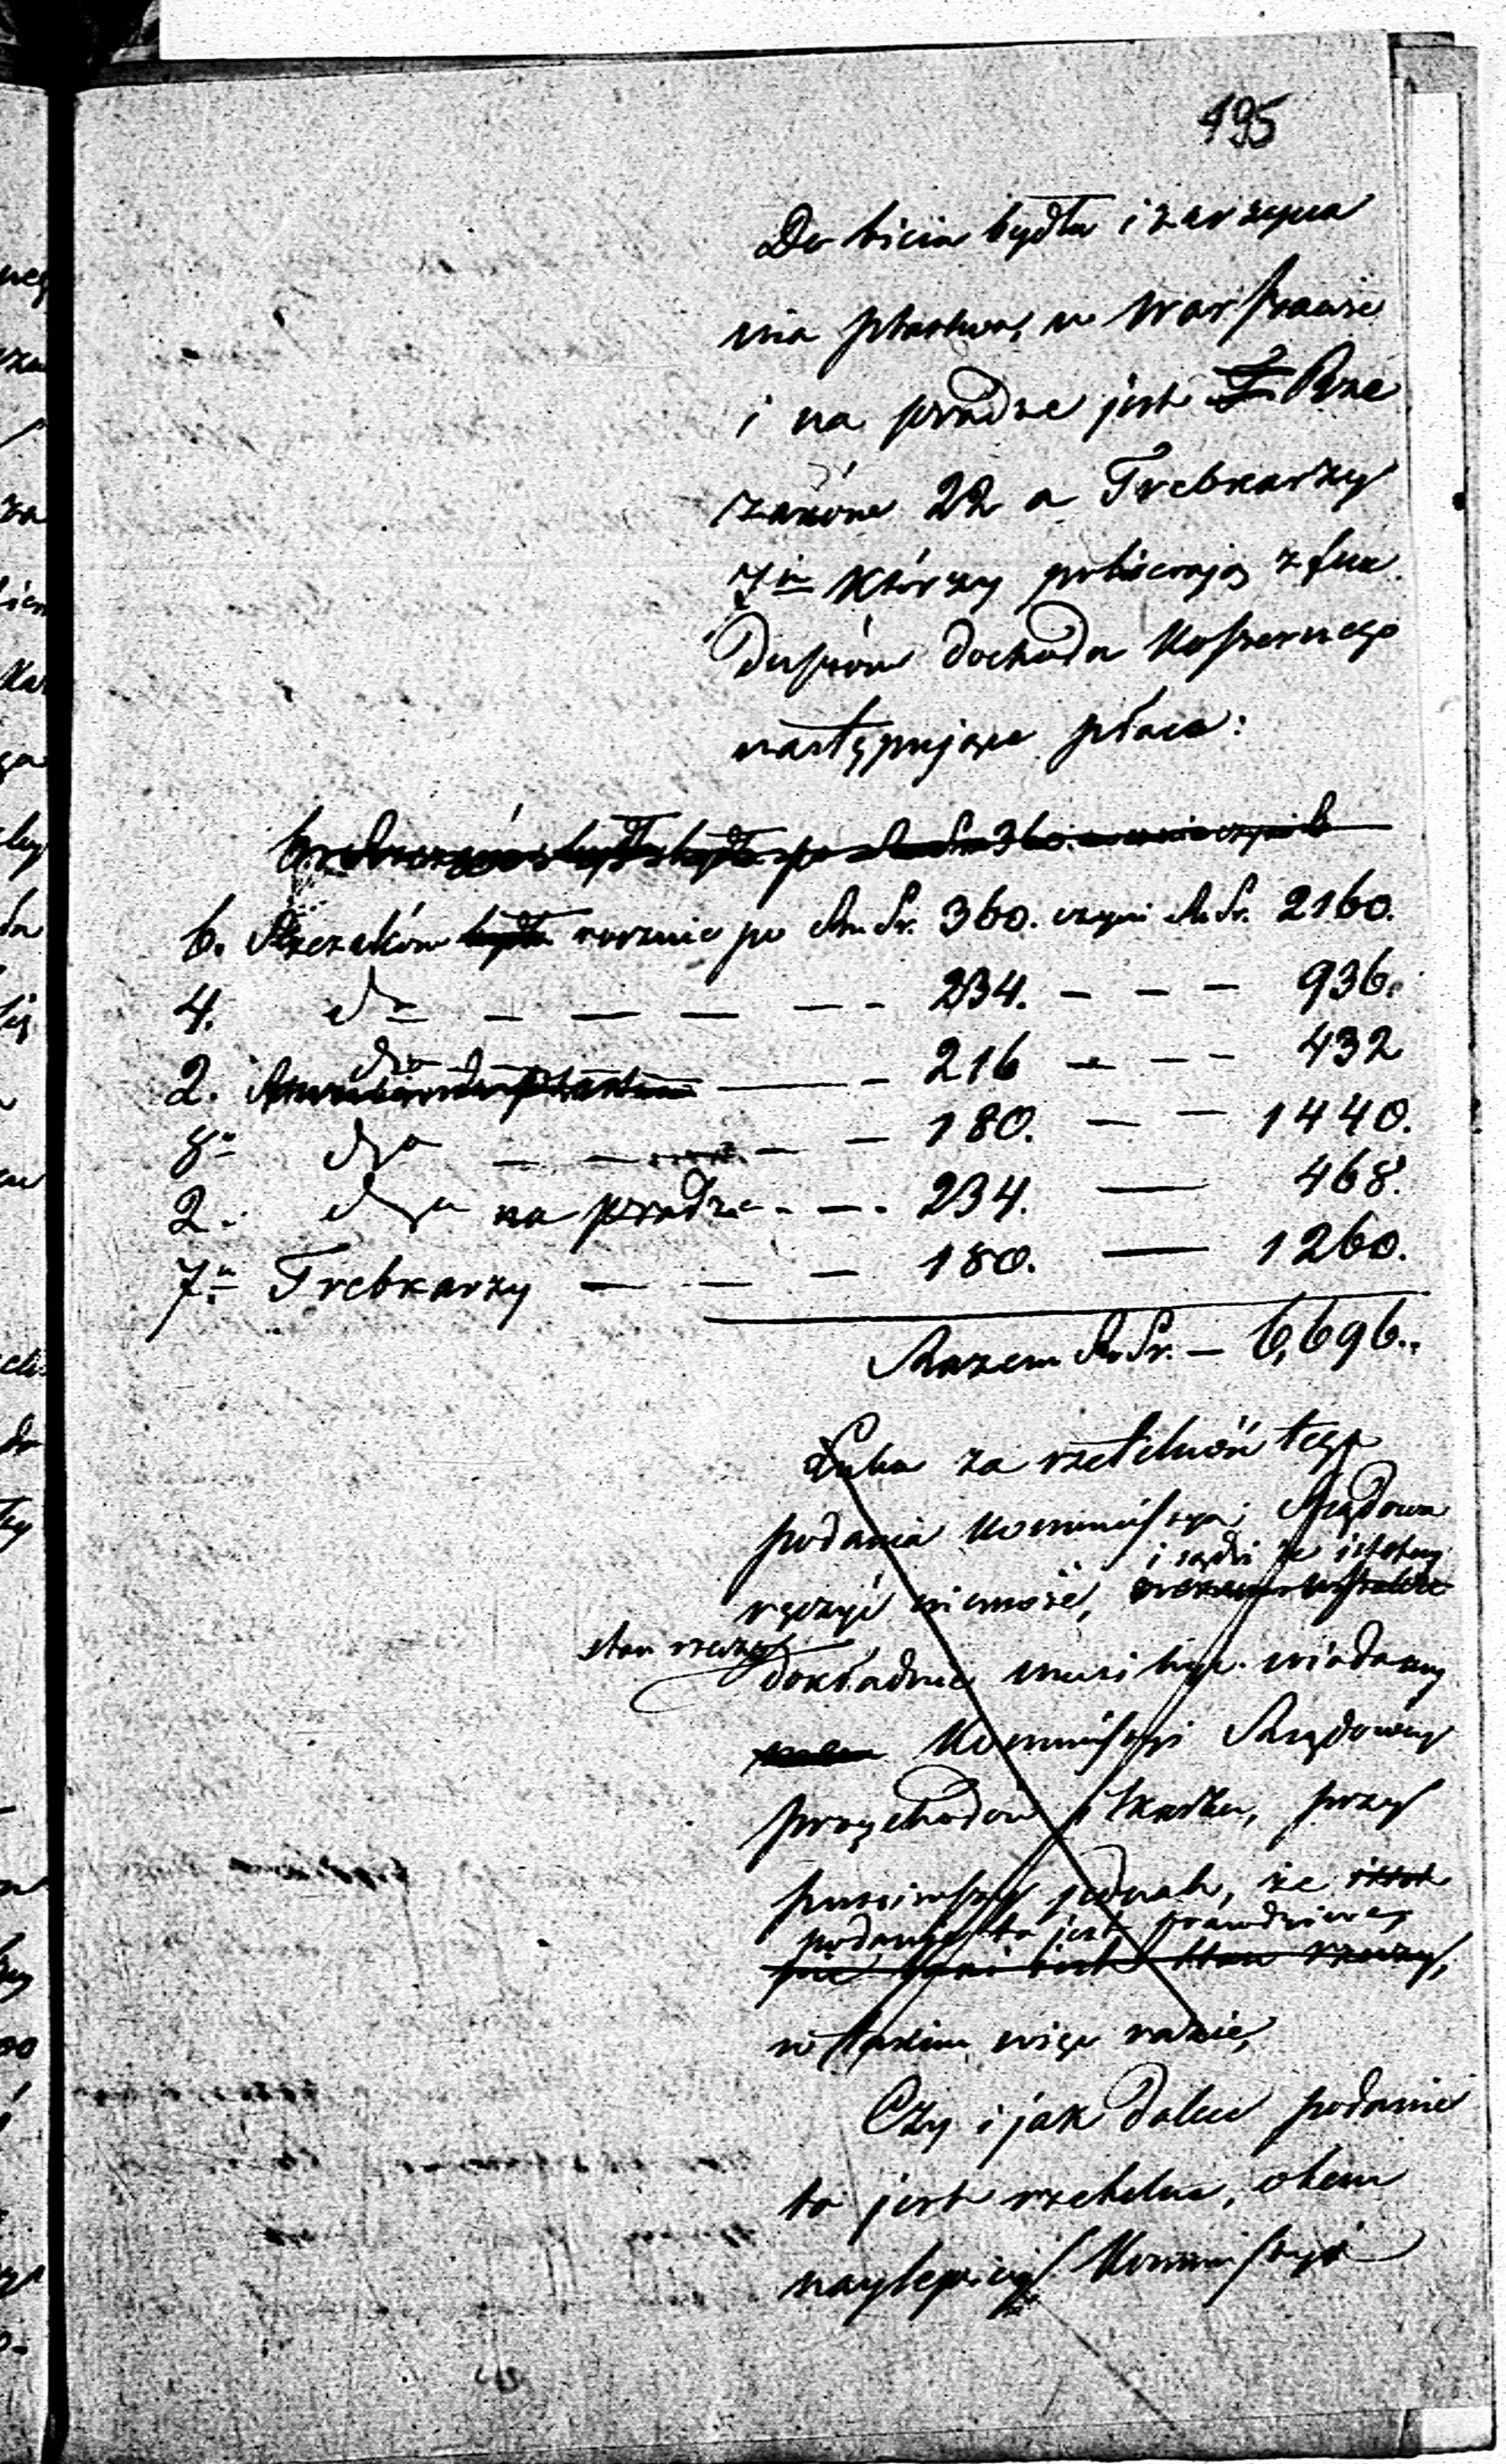 195
Do bicia bydła i zarzyna
nia ptastwa, w Warszawie
i na pradze jest Rze
zaków 22 a Trebkarzy
7u którzy pobierają z fun
duszów dochodu Koszernego
następujące płace:
6. Rzezaków bydła rocznie po Rs. Sr. 360. czyni R. Sr. 2160.
4. dto — — — — — 234. — — — 936.
2. dto — — 216 — — — 432
8u dto — — — — 180. — — 1440.
2. dto na pradze - — . 234. — 468.
7u Trebkarzy — — — 180. — 1260.
Razem R. Sr. — 6,696.
Luba za rzetelność tego
podania Kommissya Rządowa
i sądzi że istotny
ręczyć niemoże,
stan rzeczy
dokładnie musi być wiadomy
Kommissyi Rządowey
przychodów i Skarbu, przy
puściwszy jednak, że
podanie to jest prawdziwe
stan rzeczy,
w takim więc razie,
Czy i jak dalece podanie
to jest rzetelne, o tem
naylepiey Kommissya